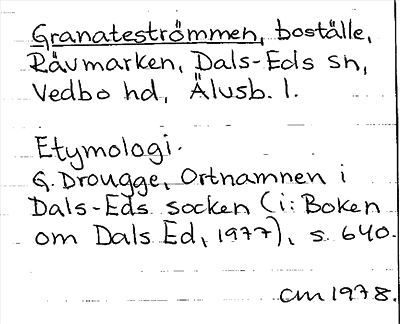 Granateströmmen, boställe,
Rävmarken, Dals-Eds sn,
Vedbo hd, Älvsb. l.
Etymologi.
G. Drougge, Ortnamnen i
Dals-Eds socken (i: Boken
om Dals Ed, 1977), s. 640.
CM 1978.